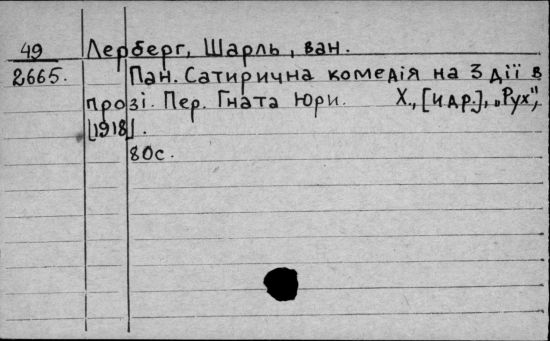 49 Лерберг, Шарль, ван.
2665. Пан. Сатирична комедія на 3 дії в
прозі. Пер. Гната Юри. Х., [и др.], „Рух",
[1918].
80с.